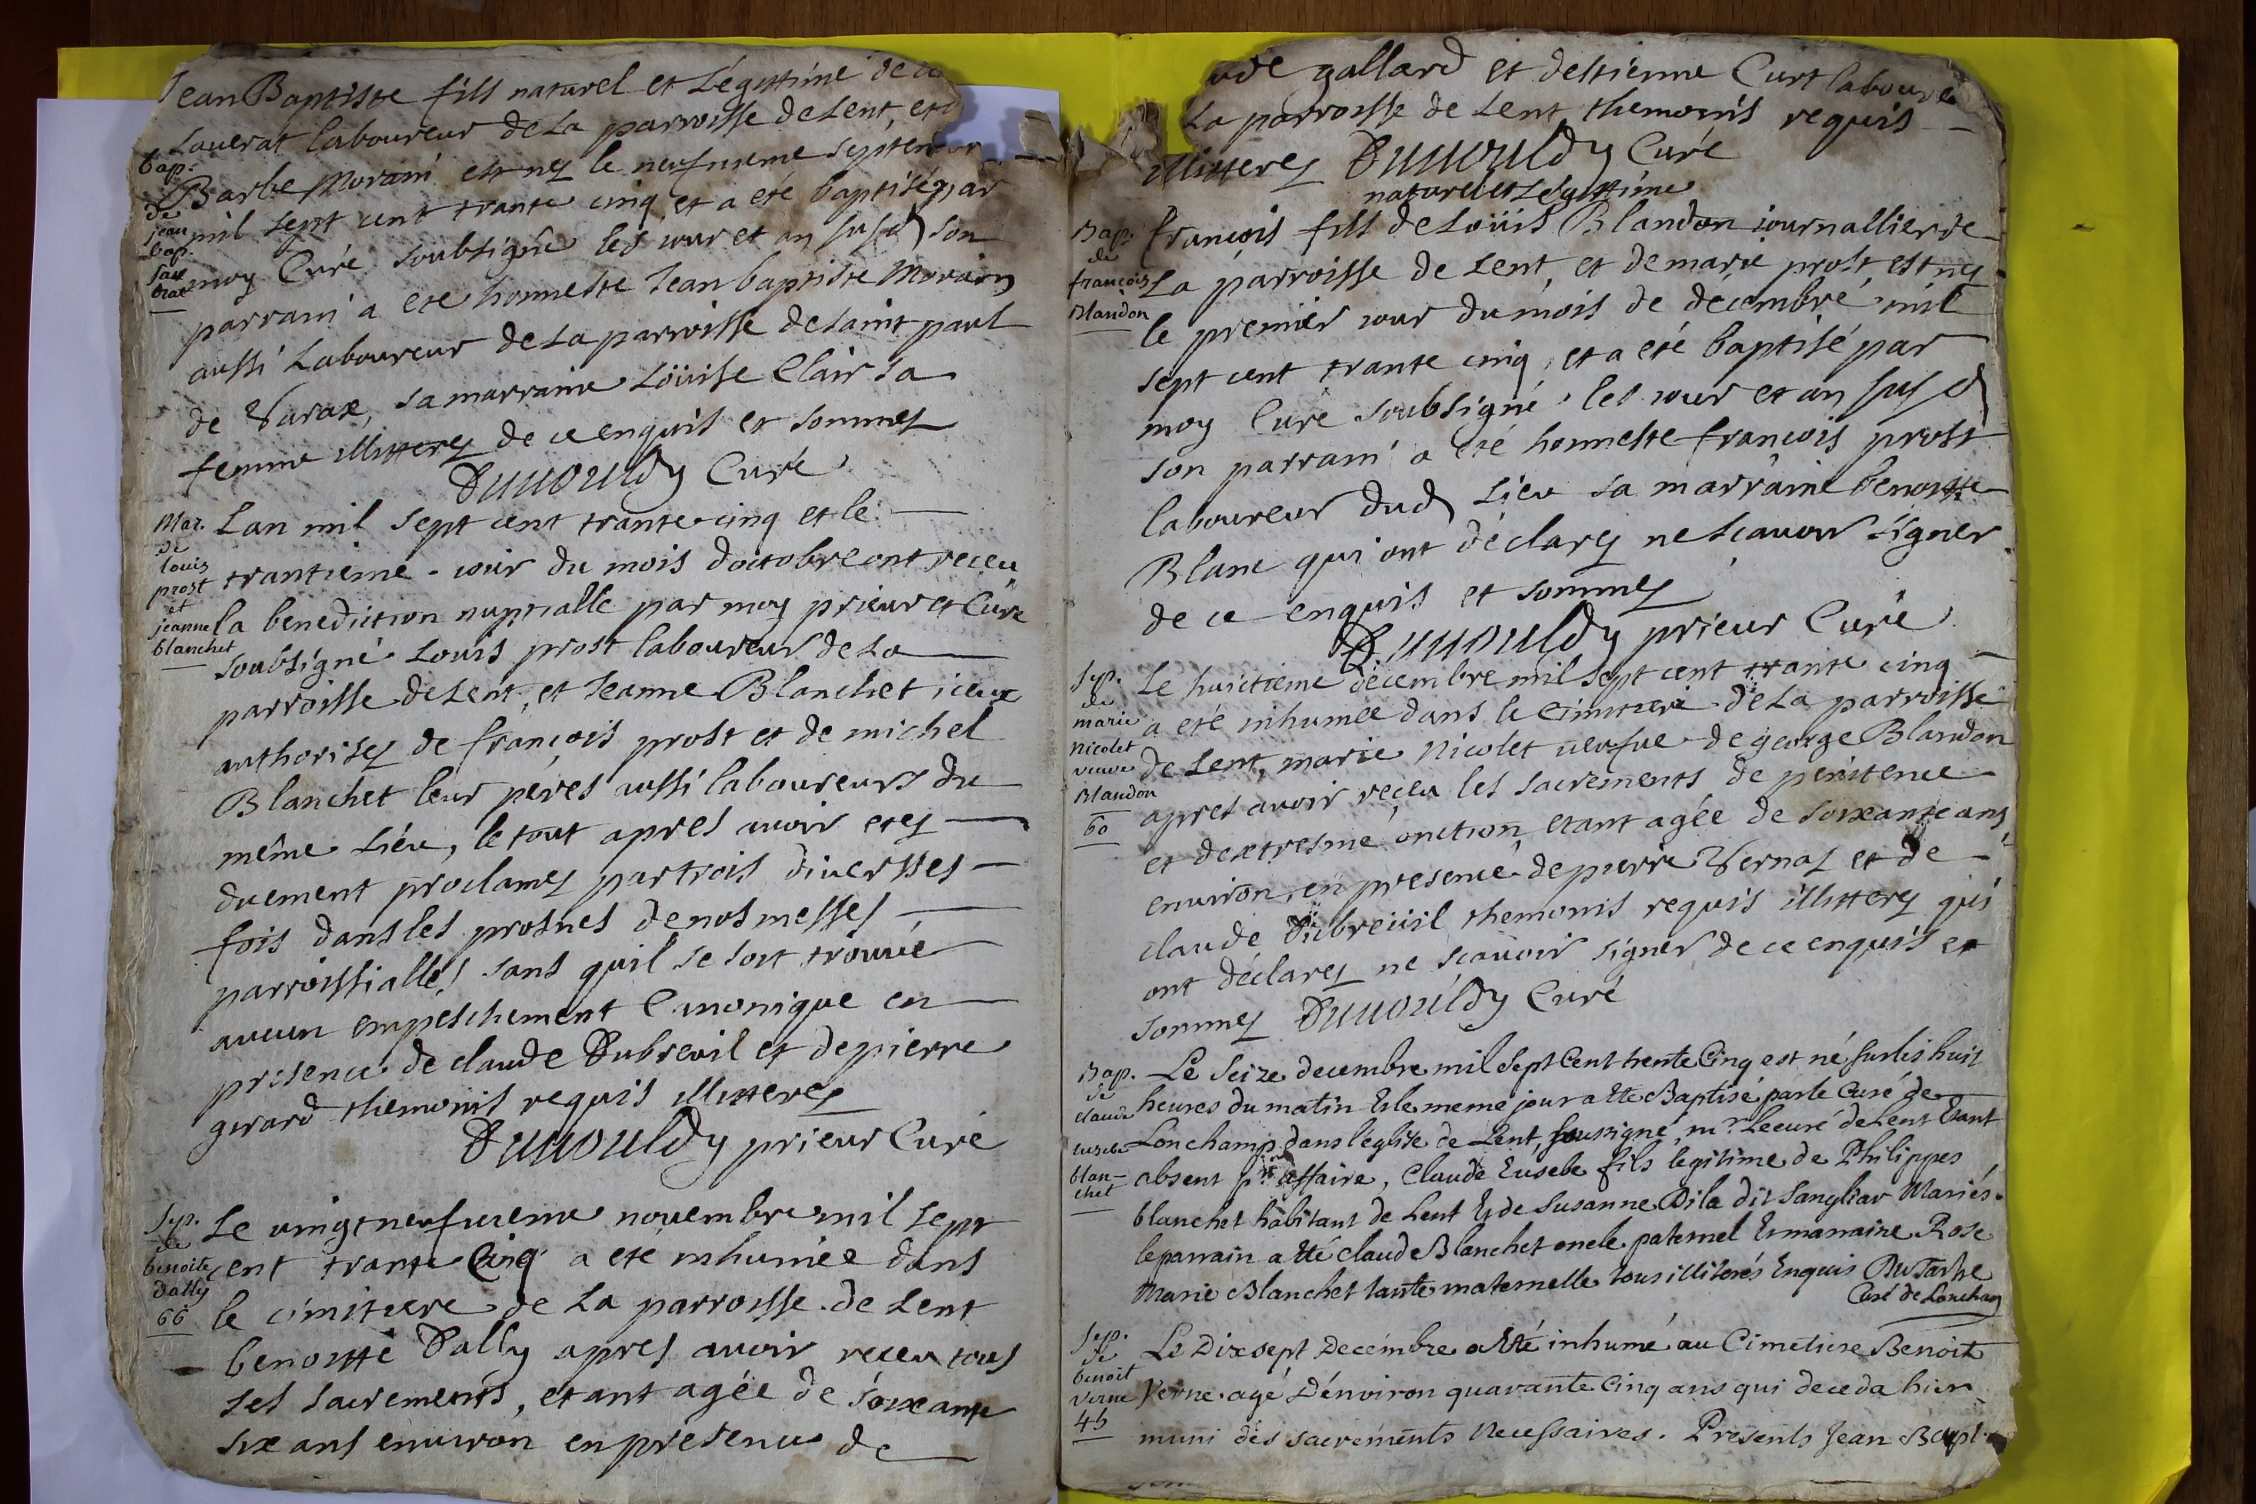 Jean Baptiste fils naturel et Légittime de
Lauerat laboureur de La parroisse de Lent, et
Barbe Morain est nez le neufuieme septembr
mil sept cent trante cinq et a eté baptisé par
moy Curé soubsigné les iour et an susd son
parrain a ete honneste Jean baptiste Morain
aussi Laboureur de La parroisse de saint paul
de Varax, sa marraine Loüise Clair sa
femme illitterez de ce enquis et sommez
Duuouldy Curé
bap.
de
jean
bap.
Lan mil sept cent trante cinq et le
trantieme iour du mois doctobre ont receu
la benediction nuptialle par moy prieur et Curé
soubsigné Louis prost laboureur de La
parroisse de Lent, et Jeanne Blanchet iceux
authorisez de françois prost et de michel
Blanchet leur peres aussi laboureurs du
même Lieu, le tout apres auoir etez
duement proclamez par trois diuersses
fois dans les prosnes de nos messes
parroissialles sans quil se soit trouué
aucun empeschement Canonique en
presence de claude Dubreuil et de pierre
girard themoins requis illitterez
Duuouldy prieur Curé
Mar.
de
louis
prost
et
jeanne
blanchet
Le uingt neufuieme nouembre mil sept
cent trante Cinq a eté inhumée dans
le cimitiere de La parroisse de Lent
benoitte Dally apres auoir receu tous
ses sacrements, etant agée de soixante
six ans enuiron en presence de
Sep.
de
benoite
dally
66
ude gallard et destienne Curt laboure
La parroisse de Lent themoins requis
illitterez Duuouldy Curé
naturel et Légittime
françois fils de Loüis Blandon iournallier de
La parroisse de Lent, et de marie prost, est nez
le premier iour du mois de décembre mil
sept cent trante cinq, et a eté baptisé par
moy Curé soubsigné les iour et an susd
son parrain a eté honneste françois prost
laboureur dud Lieu sa marraine benoitte
Blanc qui ont déclarez ne scauoir signer
de ce enquis et sommez
Duuouldy prieur Curé
Bap.
de
françois
Blandon
Le huictieme décembre mil sept cent trante cinq
a eté inhumée dans le cimitiere de La parroisse
de Lent, marie Nicolet ueufue de george Blandon
apres auoir receu les sacrements de penitence
et dextresme onction etant agée de soixante ans
enuiron, en presence de pierre Vernaz et de
claude Dubreüil themoins requis illitterez qui
ont déclarez ne scauoir signer de ce enquis et
sommez Duuouldy Curé
Sep.
de
marie
Nicolet
veuve
Blandon
60
Le Seize decembre mil Sept Cent trente Cinq est né sur les huit
heures du matin & le meme jour a été Baptisé par le Curé de
Lonchamp dans l'eglise de Lent, soussigné, mr Lecuré de Lent Etant
absent pr affaire, Claude Eusebe fils legitime de Philippes
blanchet habitant de Lent & de Susanne Dila dit Sangliar Mariés.
le parrain a été Claude Blanchet oncle paternel & marraine Rose
Marie Blanchet tante maternelle tous illiterés Enquis
Curé de Lonchamp
Bap.
de
claude
eusebe
blan-
chet
Le Dix sept Decembre a été inhumé au Cimetiere Benoit
Verne agé d'environ quarante Cinq ans qui deceda hier
muni des sacrements Necessaires. Presents Jean Bapt
Sep.
de
benoit
verne
45